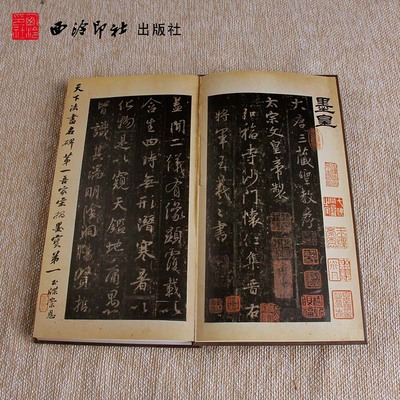 西泠印社 出版社
墨皇
大唐三藏聖教序
太宗文皇帝製
弘福寺沙門懷仁集晉右
將軍王羲之書
蓋聞二儀有像顯覆載以
含生四時無形潛寒暑以
化物是以窺天鑑地庸愚
皆識其端明陰洞陽賢哲
天下法書名碑第一吾家堂
墨寶第一